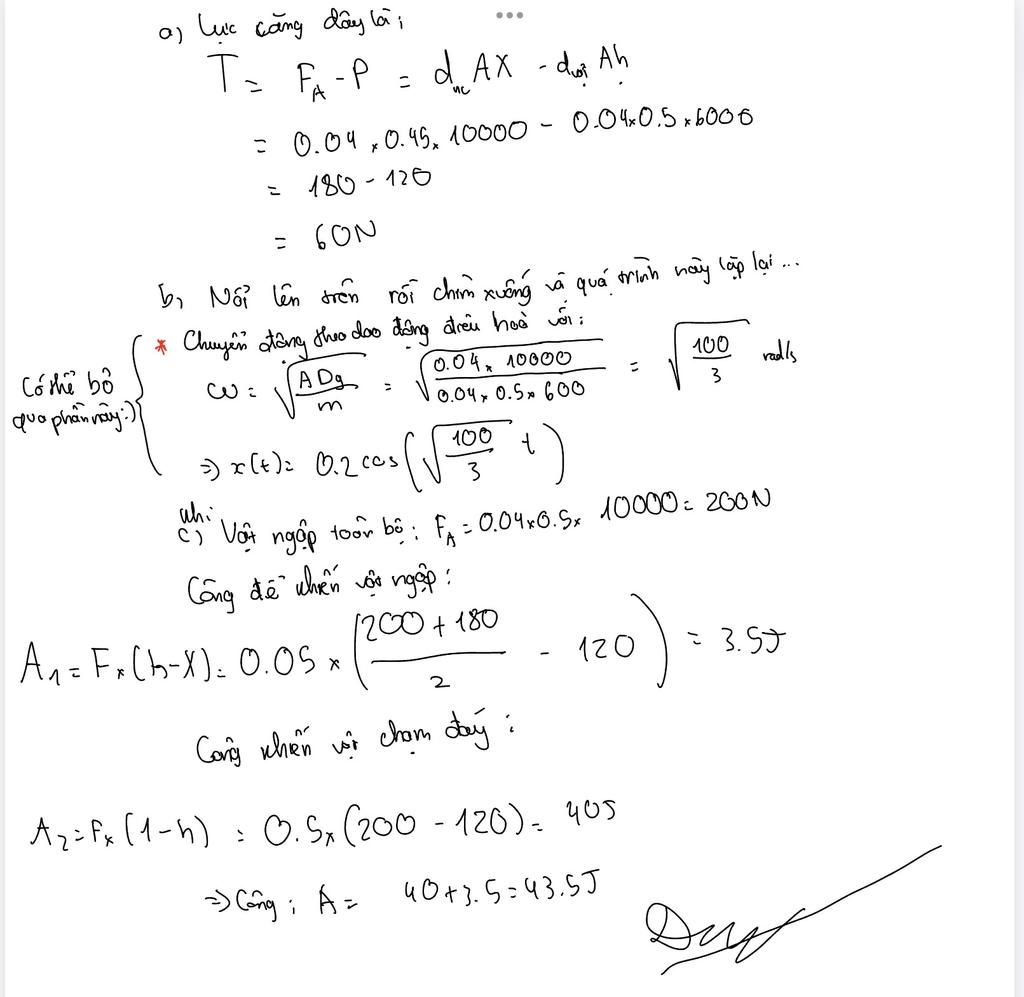 a) Lực căng dây là:
T = F_A - P = d_nc AX - d_vật Ah
= 0.04 x 0.45 x 10000 - 0.04 x 0.5 x 6000
= 180 - 120
= 60N
b, Nổi lên trên rồi chìm xuống và quá trình này lặp lại ...
* Chuyển động theo dao động điều hoà với:
Có thể bỏ qua phần này :)
ω = √(ADg/m) = √((0.04 x 10000)/(0.04 x 0.5 x 600)) = √(100/3) rad/s
=> x(t) = 0.2 cos(√(100/3) t)
khi
c) Vật ngập toàn bộ: F_A = 0.04 x 0.5 x 10000 = 200N
Công để khiến vật ngập:
A_1 = F x (h-X) = 0.05 x ((200 + 180)/2 - 120) = 3.5J
Công khiến vật chạm đáy:
A_2 = F x (1-h) = 0.5 x (200 - 120) = 40J
=> Công: A = 40 + 3.5 = 43.5J
Duy